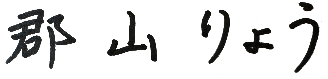 郡山りょう